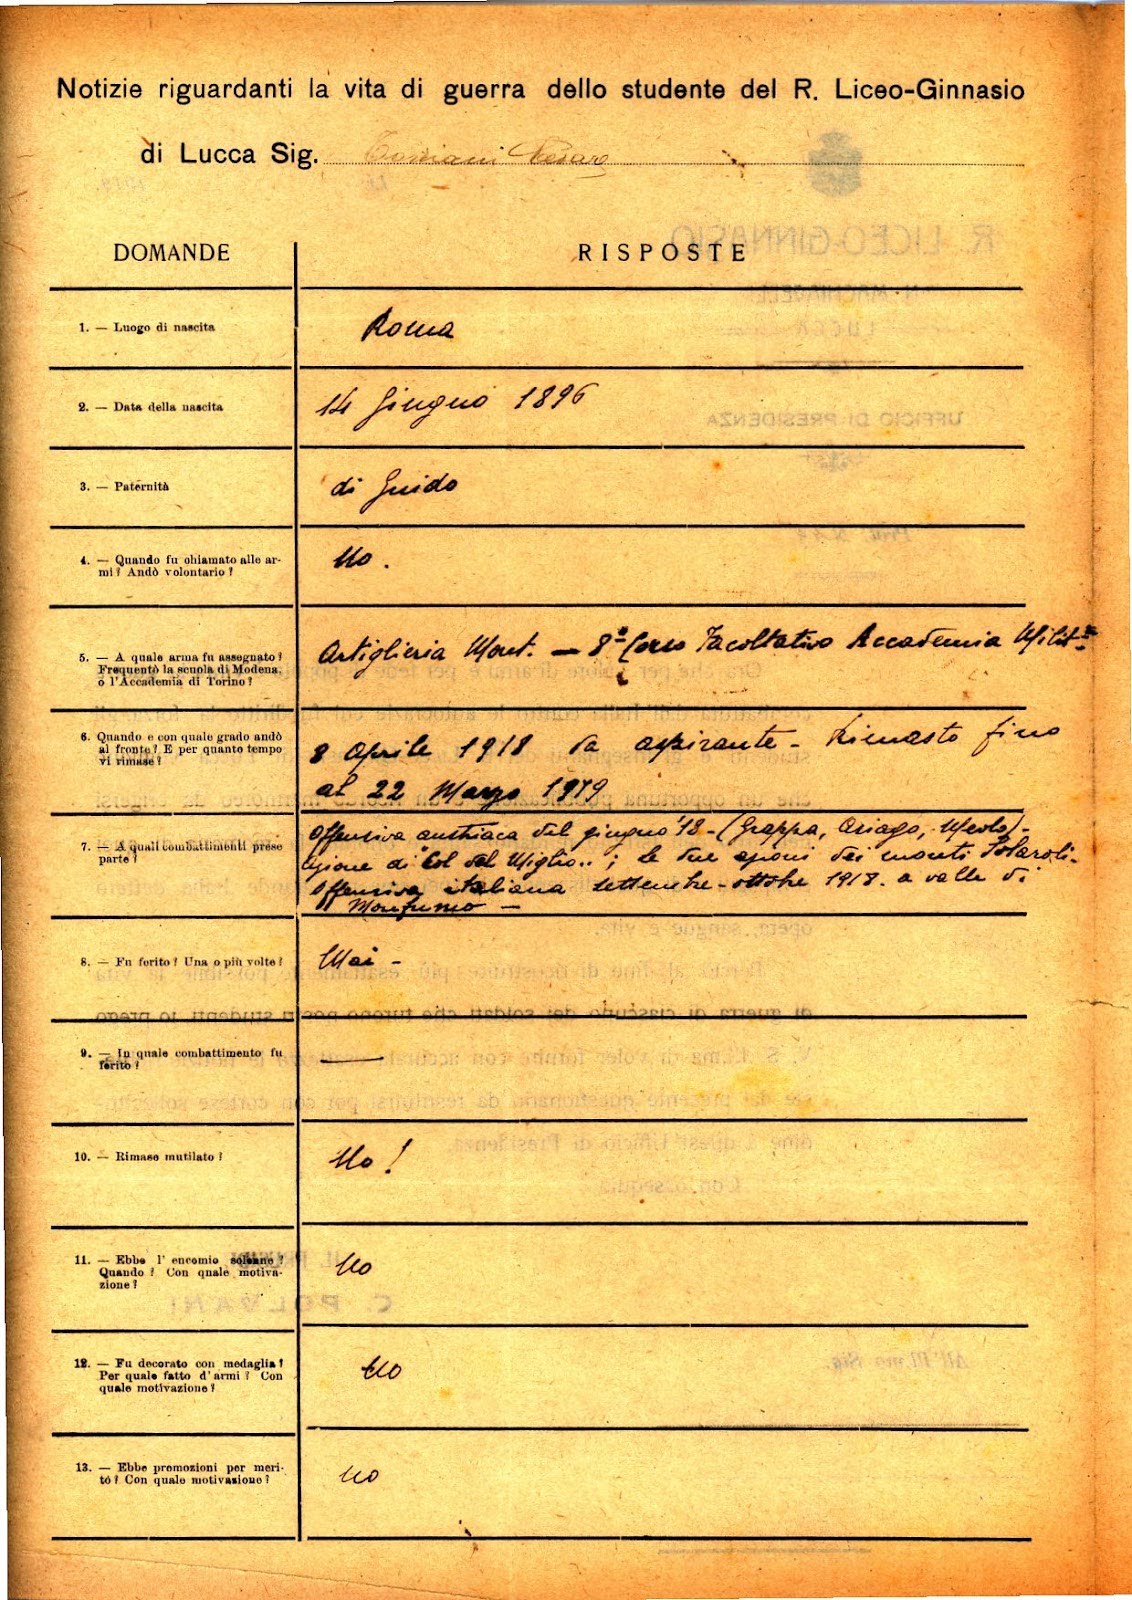 Notizie riguardanti la vita di guerra dello studente del R. Liceo-Ginnasio
di Lucca Sig. Cesare
DOMANDE
RISPOSTE
1. — Luogo di nascita
Roma
2. — Data della nascita
14 Giugno 1896
3. — Paternità
di Guido
4. — Quando fu chiamato alle ar-
mi? Andò volontario?
No.
5. — A quale arma fu assegnato?
Frequentò la scuola di Modena
o l'Accademia di Torino?
Artiglieria Mont. — 8° Corso Facoltativo Accademia Milit.
6. Quando e con quale grado andò
al fronte? E per quanto tempo
vi rimase?
8 Aprile 1918 da aspirante - Rimasto fino
al 22 Marzo 1919
7. — A quali combattimenti prese
parte?
Offensiva austriaca del giugno '18 - (Grappa, Asiago, Meolo) -
azione di "Col del Miglio.. ; le due azioni dei monti Solaroli -
Offensiva italiana settembre - ottobre 1918. a valle di
Monfumo —
8. — Fu ferito? Una o più volte?
Mai -
9. — In quale combattimento fu
ferito?
—
10. — Rimase mutilato?
No!
11. — Ebbe l' encomio solenne?
Quando? Con quale motiva-
zione?
No
12. — Fu decorato con medaglia?
Per quale fatto d' armi? Con
quale motivazione?
No
13. — Ebbe promozioni per meri-
to? Con quale motivazione?
No